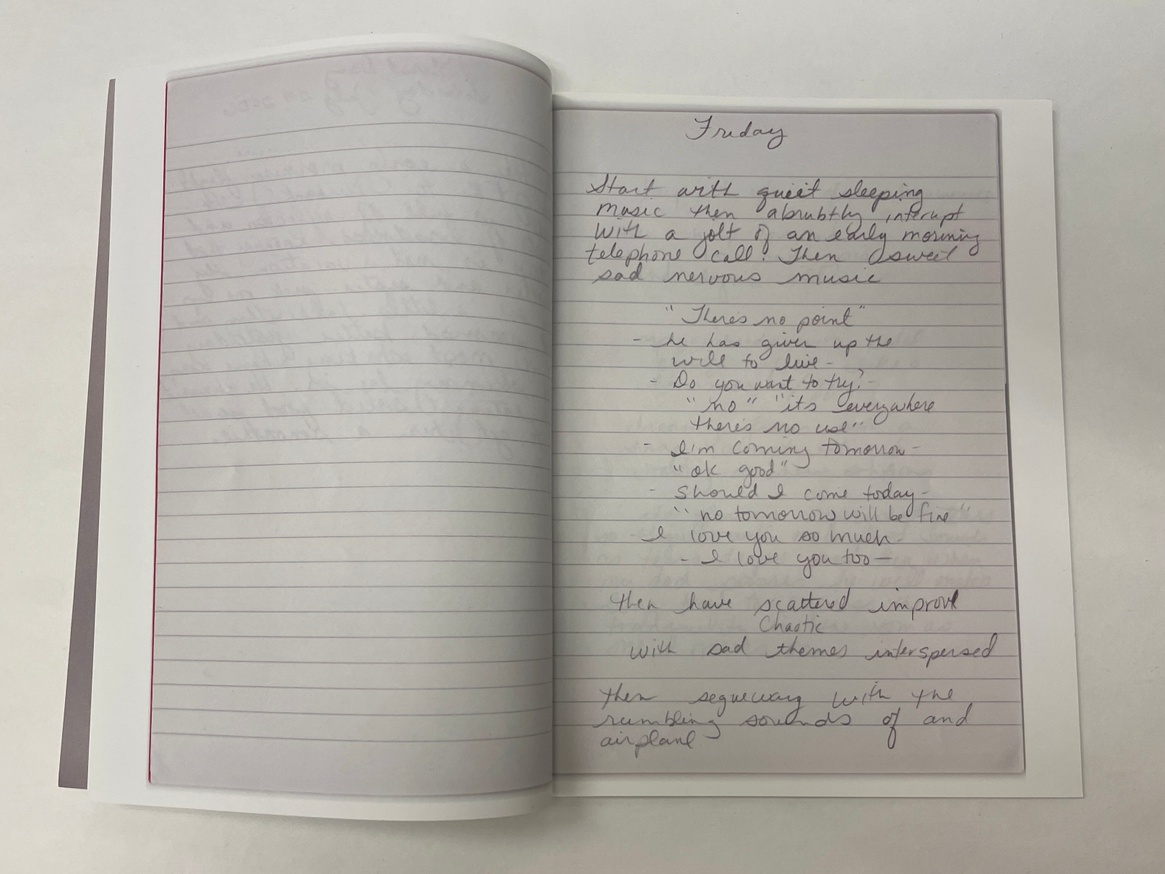 Friday
Start with quiet sleeping
music then abrubtly interupt
with a jolt of an early morning
telephone call! Then sweet
sad nervous music
"Theres no point"
- he has given up the
will to live -
- Do you want to try? -
"no" "its everywhere
theres no use"
- I'm coming tomorrow -
"ok good"
- Should I come today -
"no tomorrow will be fine"
- I love you so much -
- I love you too -
then have scattered improv
Chaotic
with sad themes interspersed
then segueway with the
rumbling sounds of and
airplane